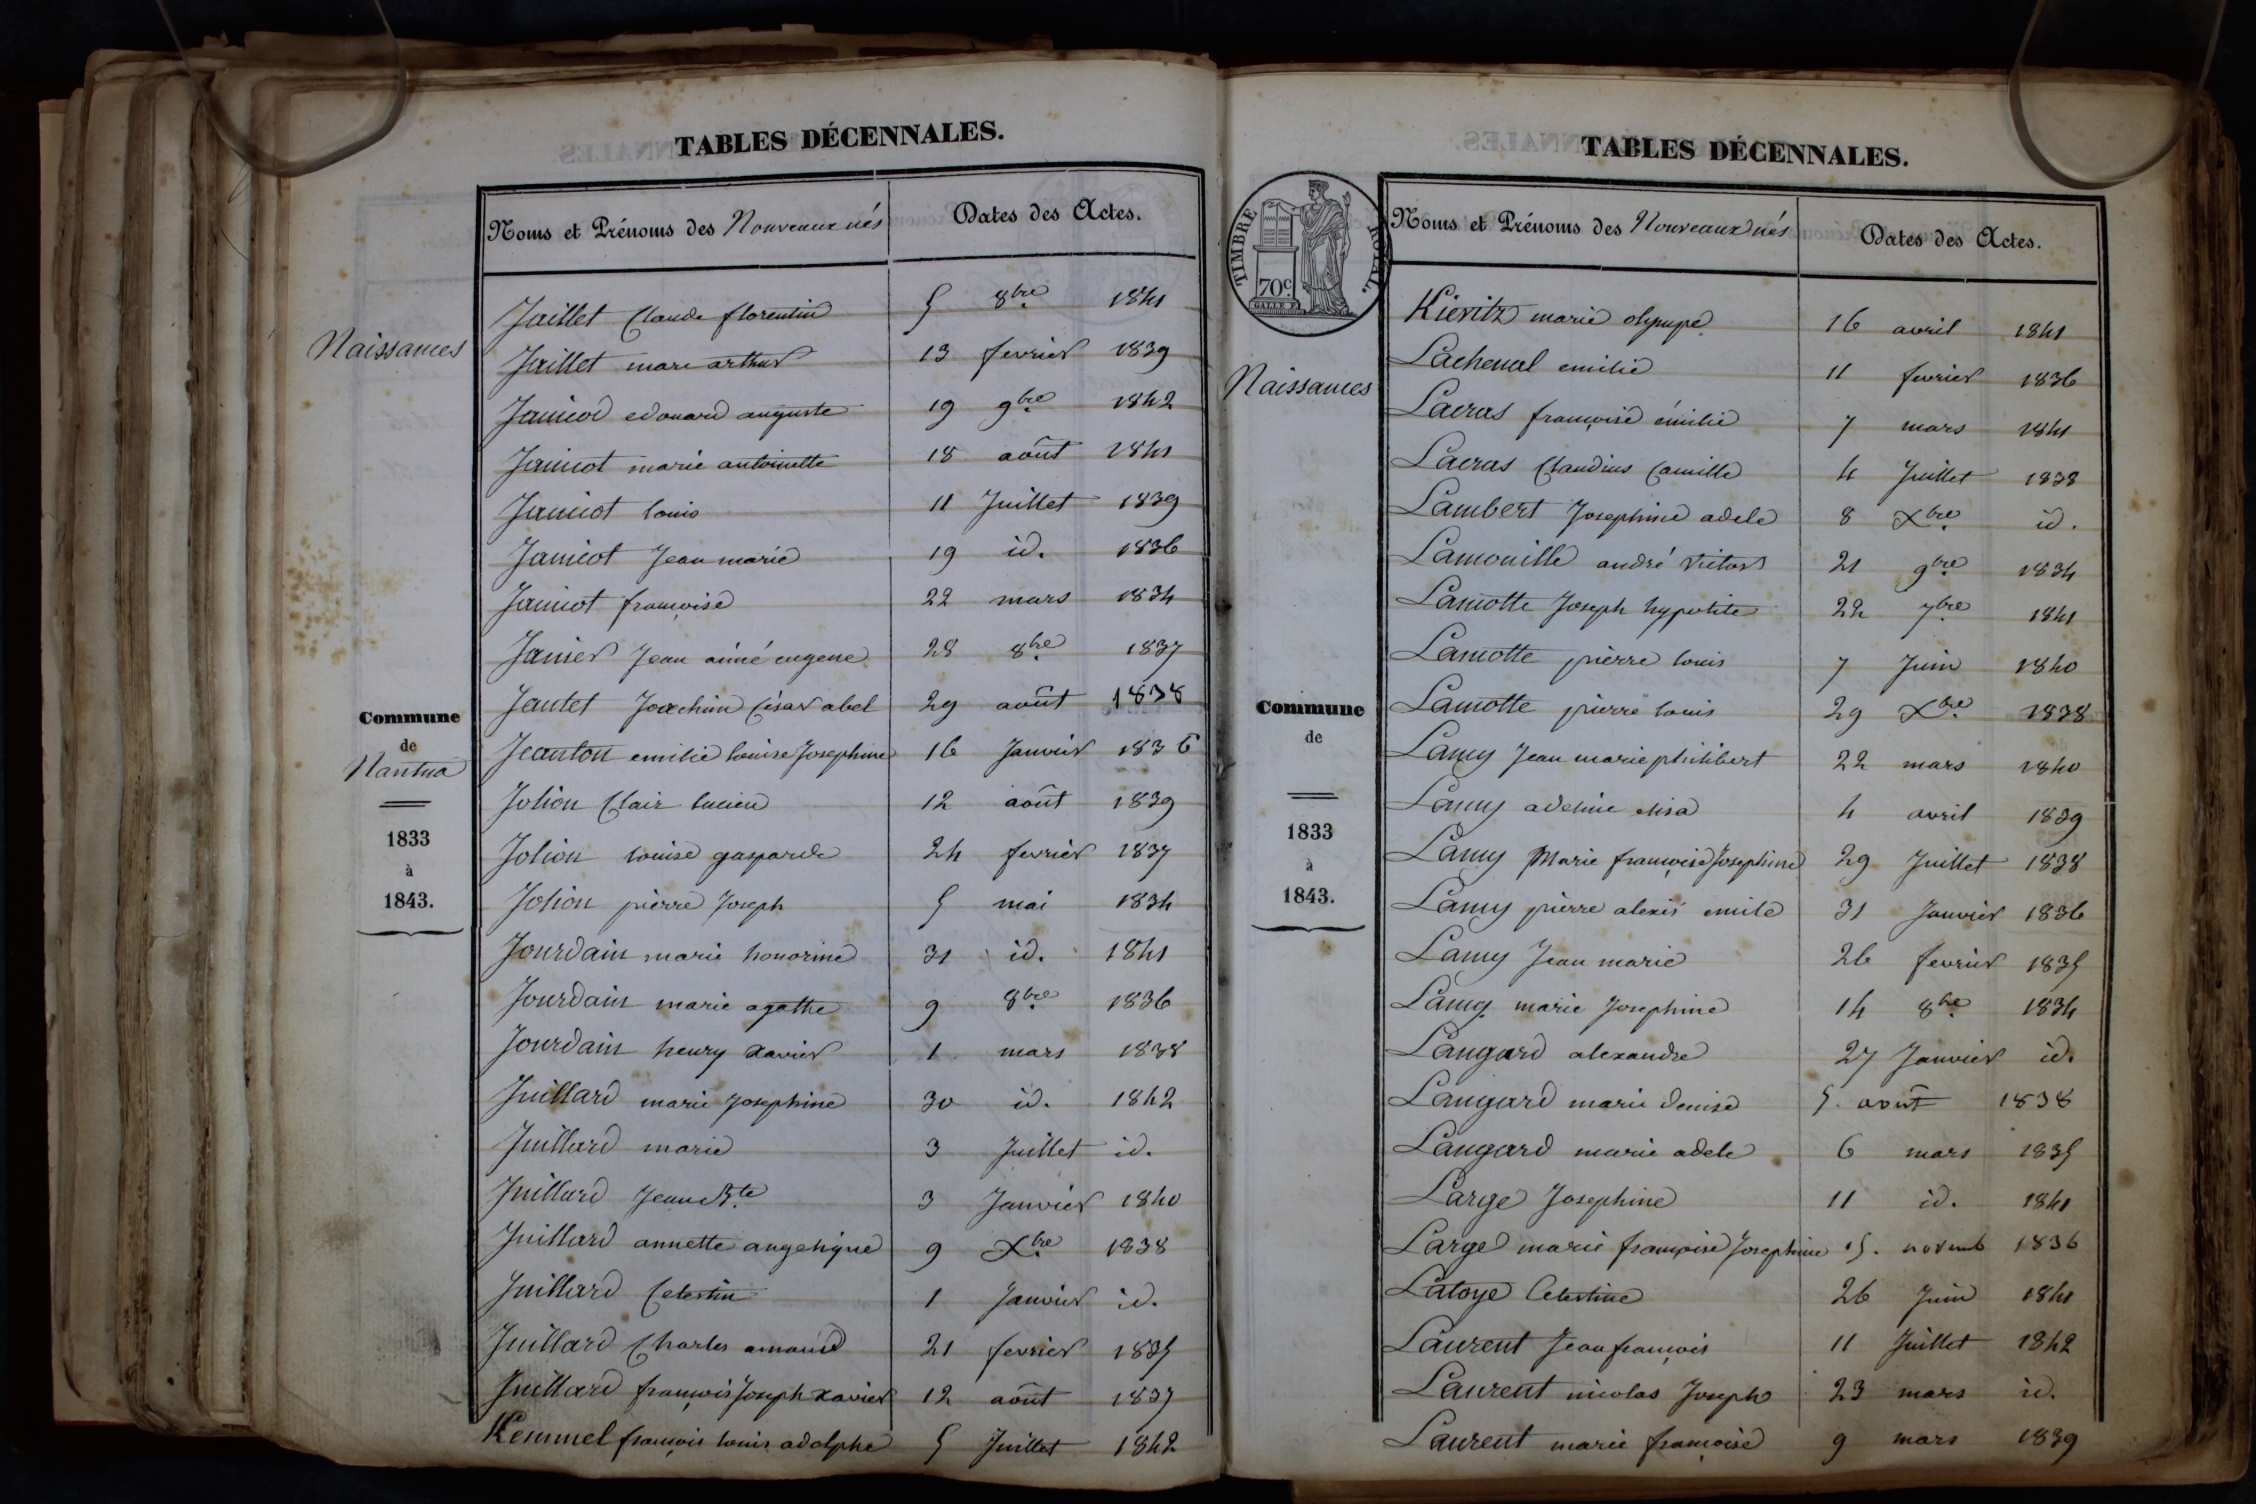 TABLES DÉCENNALES.
Noms et Prénoms des Nouveaux nés Dates des Actes.
Naissances
Commune
de
Nantua
1833
à
1843.
Jaillet Claude florentin 5 8bre 1841
Jaillet marc arthur 13 fevrier 1839
Janicod edouard auguste 19 9bre 1842
Janicot marie antoinette 18 août 1841
Janicot louis 11 Juillet 1839
Janicot Jean marie 19 id. 1836
Janicot françoise 22 mars 1834
Janier Jean aimé eugene 28 8bre 1837
Jantet Joachim César abel 29 août 1838
Jeanton emilie louise Josephine 16 Janvier 1836
Jolion Clair lucien 12 août 1839
Jolion louise gasparde 24 fevrier 1837
Jolion pierre Joseph 5 mai 1834
Jourdain marie honorine 31 id. 1841
Jourdain marie agathe 9 8bre 1836
Jourdain henry Xavier 1 mars 1838
Juillard marie Josephine 30 id. 1842
Juillard marie 3 Juillet id.
Juillard Jean Bte 3 Janvier 1840
Juillard annette angelique 9 Xbre 1838
Juillard Celestin 1 Janvier id.
Juillard Charles amand 21 fevrier 1835
Juillard françois Joseph Xavier 12 août 1837
Kemmel françois louis adolphe 5 Juillet 1842
TABLES DÉCENNALES.
TIMBRE ROYAL.
70c
GALLE F.
Noms et Prénoms des Nouveaux nés Dates des Actes.
Naissances
Commune
de
1833
à
1843.
Kiéritz marie olympe 16 avril 1841
Lachenal emilie 11 fevrier 1836
Lacras françoise émilie 7 mars 1841
Lacras Claudius Camille 4 Juillet 1838
Lambert Josephine adele 8 Xbre id.
Lamouille andré Victor 21 9bre 1834
Lamotte Joseph hypolite 22 7bre 1841
Lamotte pierre louis 7 Juin 1840
Lamotte pierre louis 29 Xbre 1838
Lamy Jean marie philibert 22 mars 1840
Lamy adeline elisa 4 avril 1839
Lamy Marie françoise Josephine 29 Juillet 1838
Lamy pierre alexis emile 31 Janvier 1836
Lamy Jean marie 26 fevrier 1835
Lamy marie Josephine 14 8bre 1834
Langard alexandre 27 Janvier id.
Langard marie denise 5. aout 1838
Langard marie adele 6 mars 1835
Large Josephine 11 id. 1841
Large marie françoise Josephine 15. novemb 1836
Latoye Celestine 26 Juin 1841
Laurent Jean françois 11 Juillet 1842
Laurent nicolas Joseph 23 mars id.
Laurent marie françoise 9 mars 1839